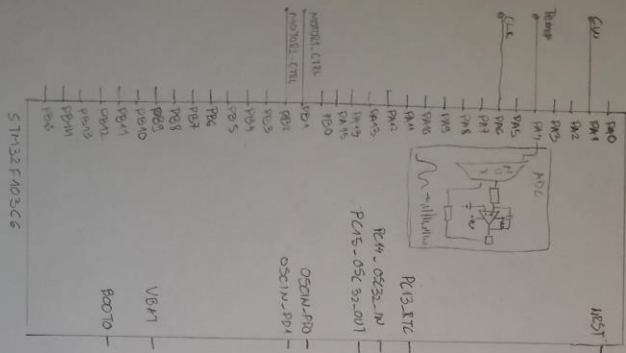 GW
Temp
CLK
MOTOR1_CTRL
PA0
PA1
PA2
PA3
PA4
PA5
PA6
PA7
PA8
PA9
PA10
PA11
PA12
PA13
PA15
PB0
PB1
PB2
PB3
PB4
PB5
PB6
PB7
PB8
PB9
PB10
PB11
PB12
PB13
PB14
ADC
M
U
X
NRST
PC13_RTC
PC14-OSC32_IN
PC15-OSC32_OUT
OSCIN-PD0
OSCIN-PD1
VBAT
BOOT0
STM32F103C6